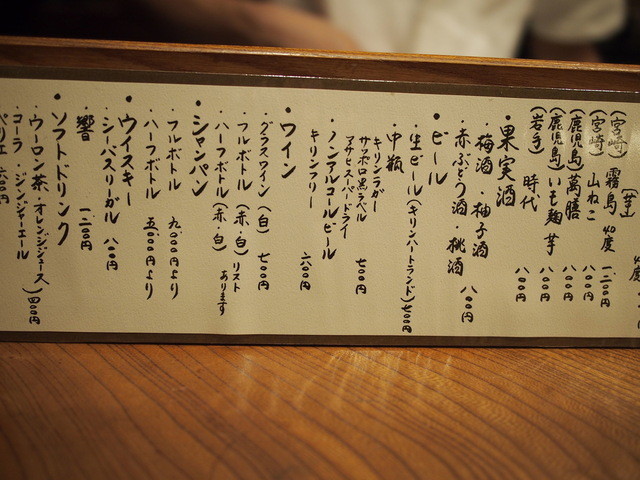 (芋)
(宮崎) 霧島 40度 一、二〇〇円
(宮崎) 山ねこ 八〇〇円
(鹿児島) 萬膳 八〇〇円
(鹿児島) いも麹 芋 八〇〇円
(岩手) 時代 八〇〇円
・果実酒
・梅酒・柚子酒
・赤ぶどう酒・桃酒 八〇〇円
・ビール
・生ビール(キリンハートランド) 七〇〇円
・中瓶
キリンラガー
サッポロ黒ラベル
アサヒスーパードライ 七〇〇円
・ノンアルコールビール
キリンフリー 六〇〇円
・ワイン
・グラスワイン(白) 七〇〇円
・フルボトル(赤・白)リスト
・ハーフボトル(赤・白) あります
・シャンパン
・フルボトル 九、〇〇〇円より
・ハーフボトル 五、〇〇〇円より
・ウイスキー
・シーバスリーガル 八〇〇円
・響 一、二〇〇円
・ソフトドリンク
・ウーロン茶・オレンジジュース
・コーラ・ジンジャーエール 四〇〇円
ペリエ 六〇〇円